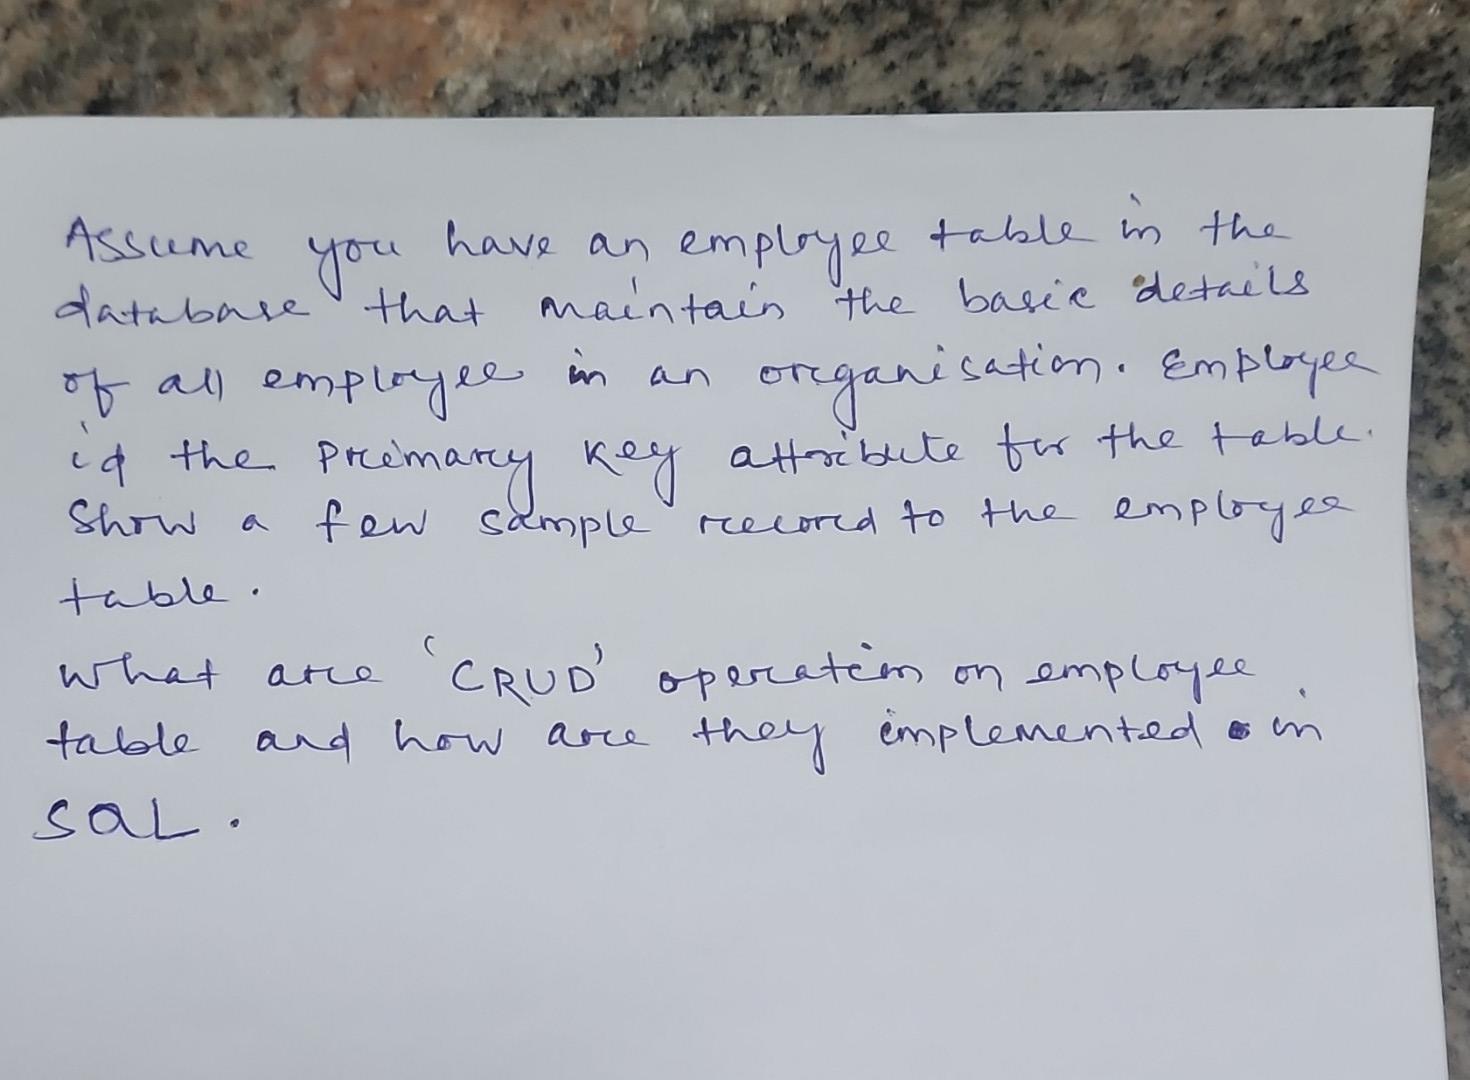 Assume you have an employee table in the
database that maintain the basic details
of all employee in an organisation. Employee
id the primary key attribute for the table.
Show a few sample record to the employee
table.
What are 'CRUD' operation on employee
table and how are they implemented in
SQL.